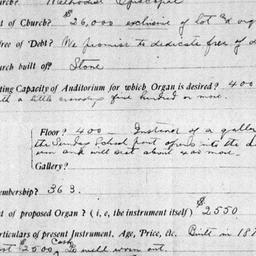 urch? Methodist Episcopal
t of Church? $26,000 exclusive of lot & org
Free of Debt? We promise to dedicate free of d
urch built of? Stone
ting Capacity of Auditorium for which Organ is desired? 400
with a little crowding five hundred or more.
Floor? 400 — Instead of a gallery
the Sunday School part opens into the
and will seat about 400 more.
Gallery?
embership? 363.
t of proposed Organ? (i, e, the instrument itself) $2550
articulars of present Instrument, Age, Price, etc. Built in 187
cost $2500 Cash is well worn out.